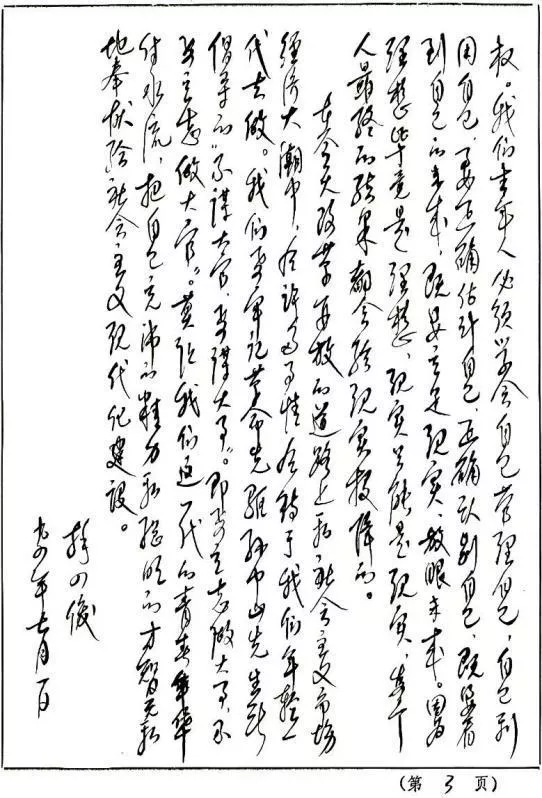 权。我们青年人必须学会自己管理自己，自己利
用自己，要正确估计自己，正确认别自己，既要看
到自己的未来，既要立足现实，放眼未来。因为
理想毕竟是理想，现实只能是现实，每个
人最终的结果都会给现实投降的。
在今天改革开放的道路上和社会主义市场
经济大潮中，有许多事情有待于我们年轻一
代去做。我们要牢记革命先驱孙中山先生所
倡导的“不谋大官，要谋大事”。即要立志做大事，不
要立志做大官”。莫让我们这一代的青春年华
付水流，把自己充沛的精力和聪明的才智无私
地奉献给社会主义现代化建设。
年七月一日
(第 3 页)